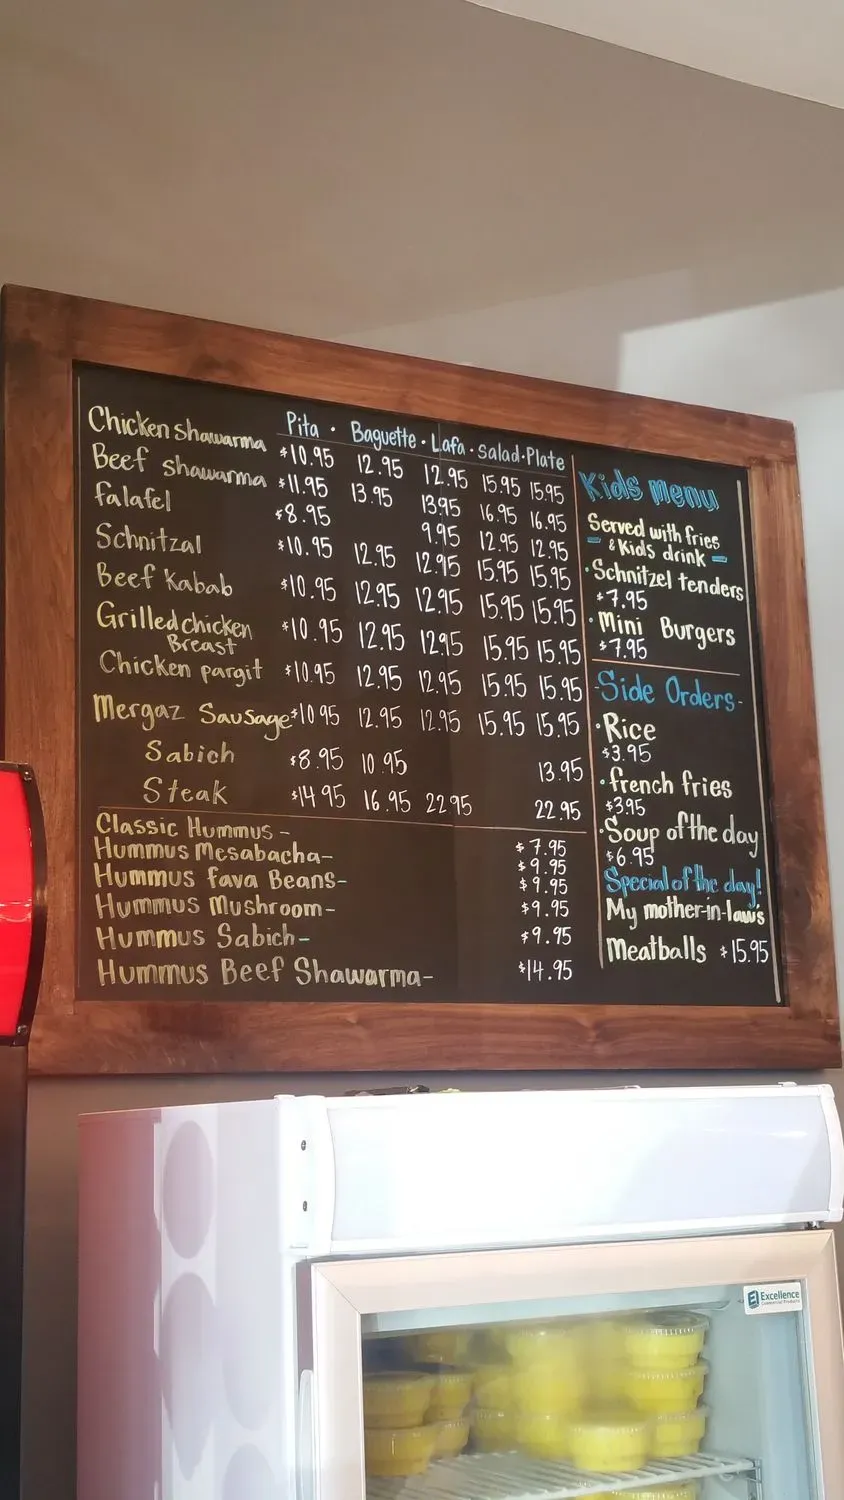 Pita · Baguette · Lafa · salad · Plate
Chicken shawarma $10.95 12.95 12.95 15.95 15.95
Beef shawarma $11.95 13.95 1395 16.95 16.95
falafel $8.95 9.95 12.95 12.95
Schnitzal $10.95 12.95 12.95 15.95 15.95
Beef Kabab $10.95 12.95 12.95 15.95 15.95
Grilled chicken
Breast $10.95 12.95 1295 15.95 15.95
Chicken pargit $10.95 12.95 12.95 15.95 15.95
Mergaz Sausage $10 95 12.95 12.95 15.95 15.95
Sabich $8.95 10.95 13.95
Steak $14 95 16.95 22 95 22.95
Classic Hummus - $7.95
Hummus Mesabacha- $9.95
Hummus fava Beans- $9.95
Hummus Mushroom- $9.95
Hummus Sabich- $9.95
Hummus Beef Shawarma- $14.95
Kids menu
Served with fries
- & Kids drink -
· Schnitzel tenders
$7.95
· Mini Burgers
$7.95
-Side Orders-
· Rice
$3.95
· french fries
$3.95
· Soup of the day
$6.95
Special of the day!
My mother-in-law's
Meatballs $15.95
Excellence
Commercial Products